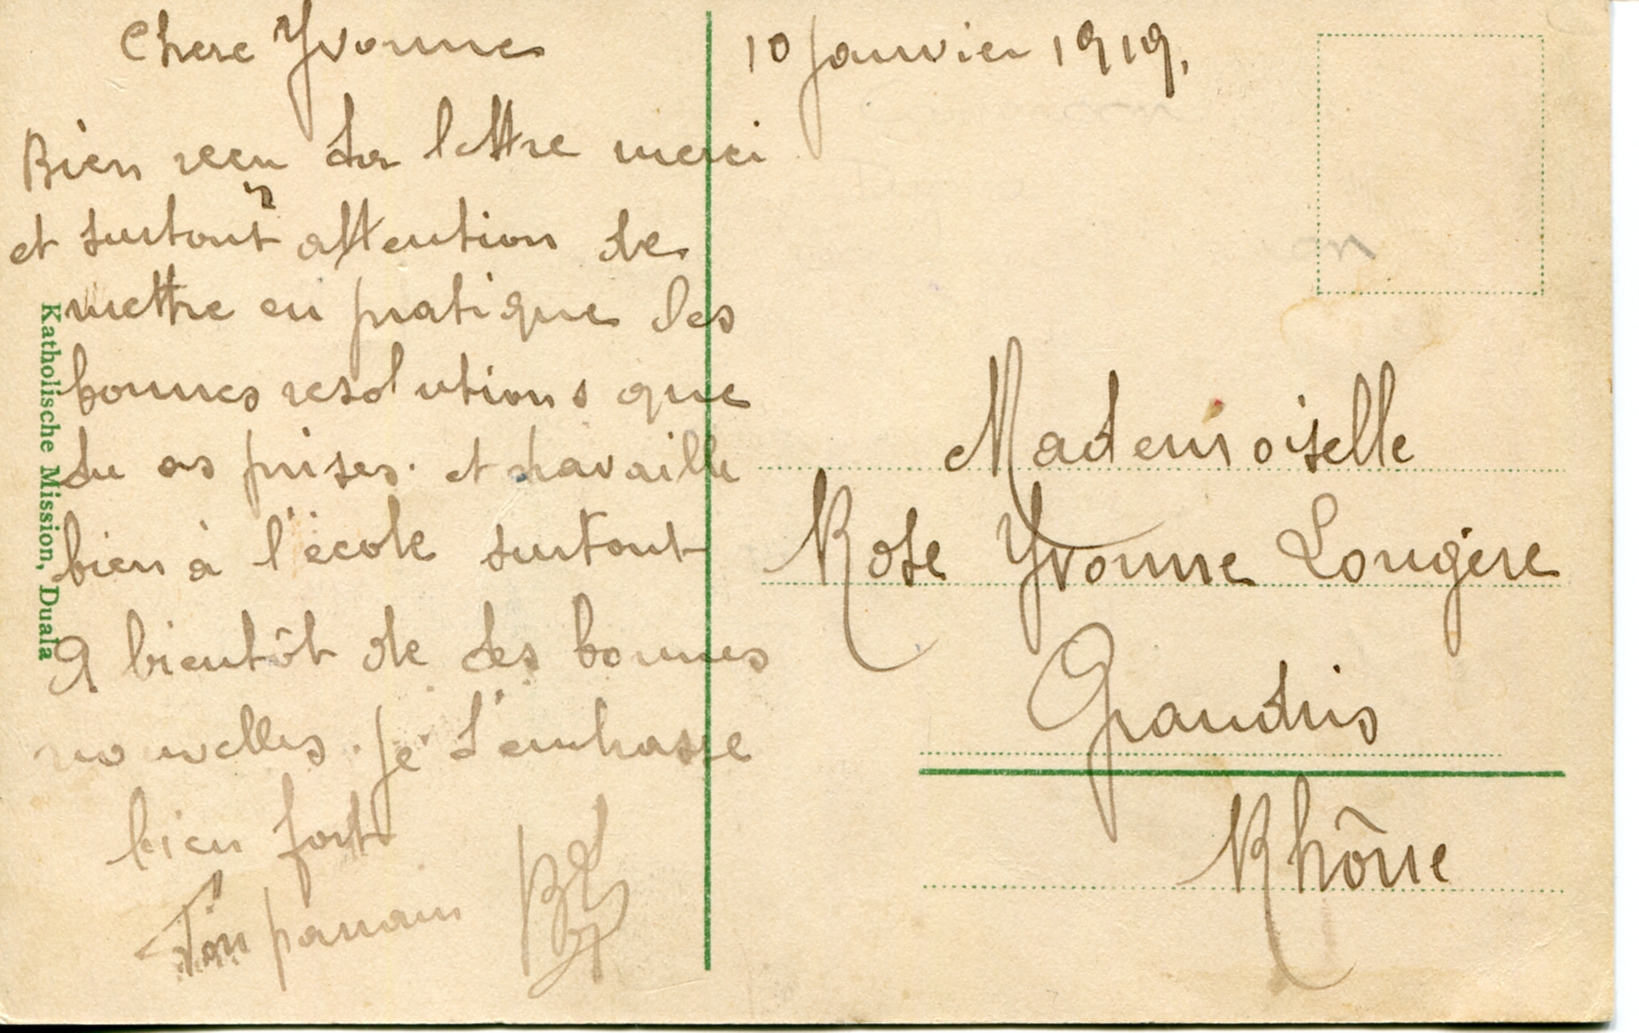 Chere Yvonne
10 Janvier 1919.
Bien reçu ta lettre merci
et surtout attention de
mettre en pratique les
bonnes resolutions que
tu as prises. et travaille
bien à l'école surtout
A bientôt de tes bonnes
nouvelles. Je t'embrasse
bien fort
Ton parrain
Mademoiselle
Rose Yvonne Longère
Grandris
Rhône
Katholische Mission, Duala